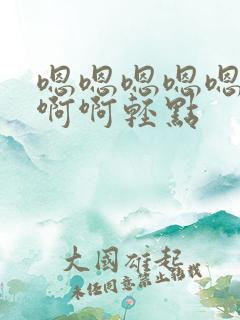 嗯嗯嗯嗯嗯
啊啊轻點
大國雄起
未经同意禁止转载